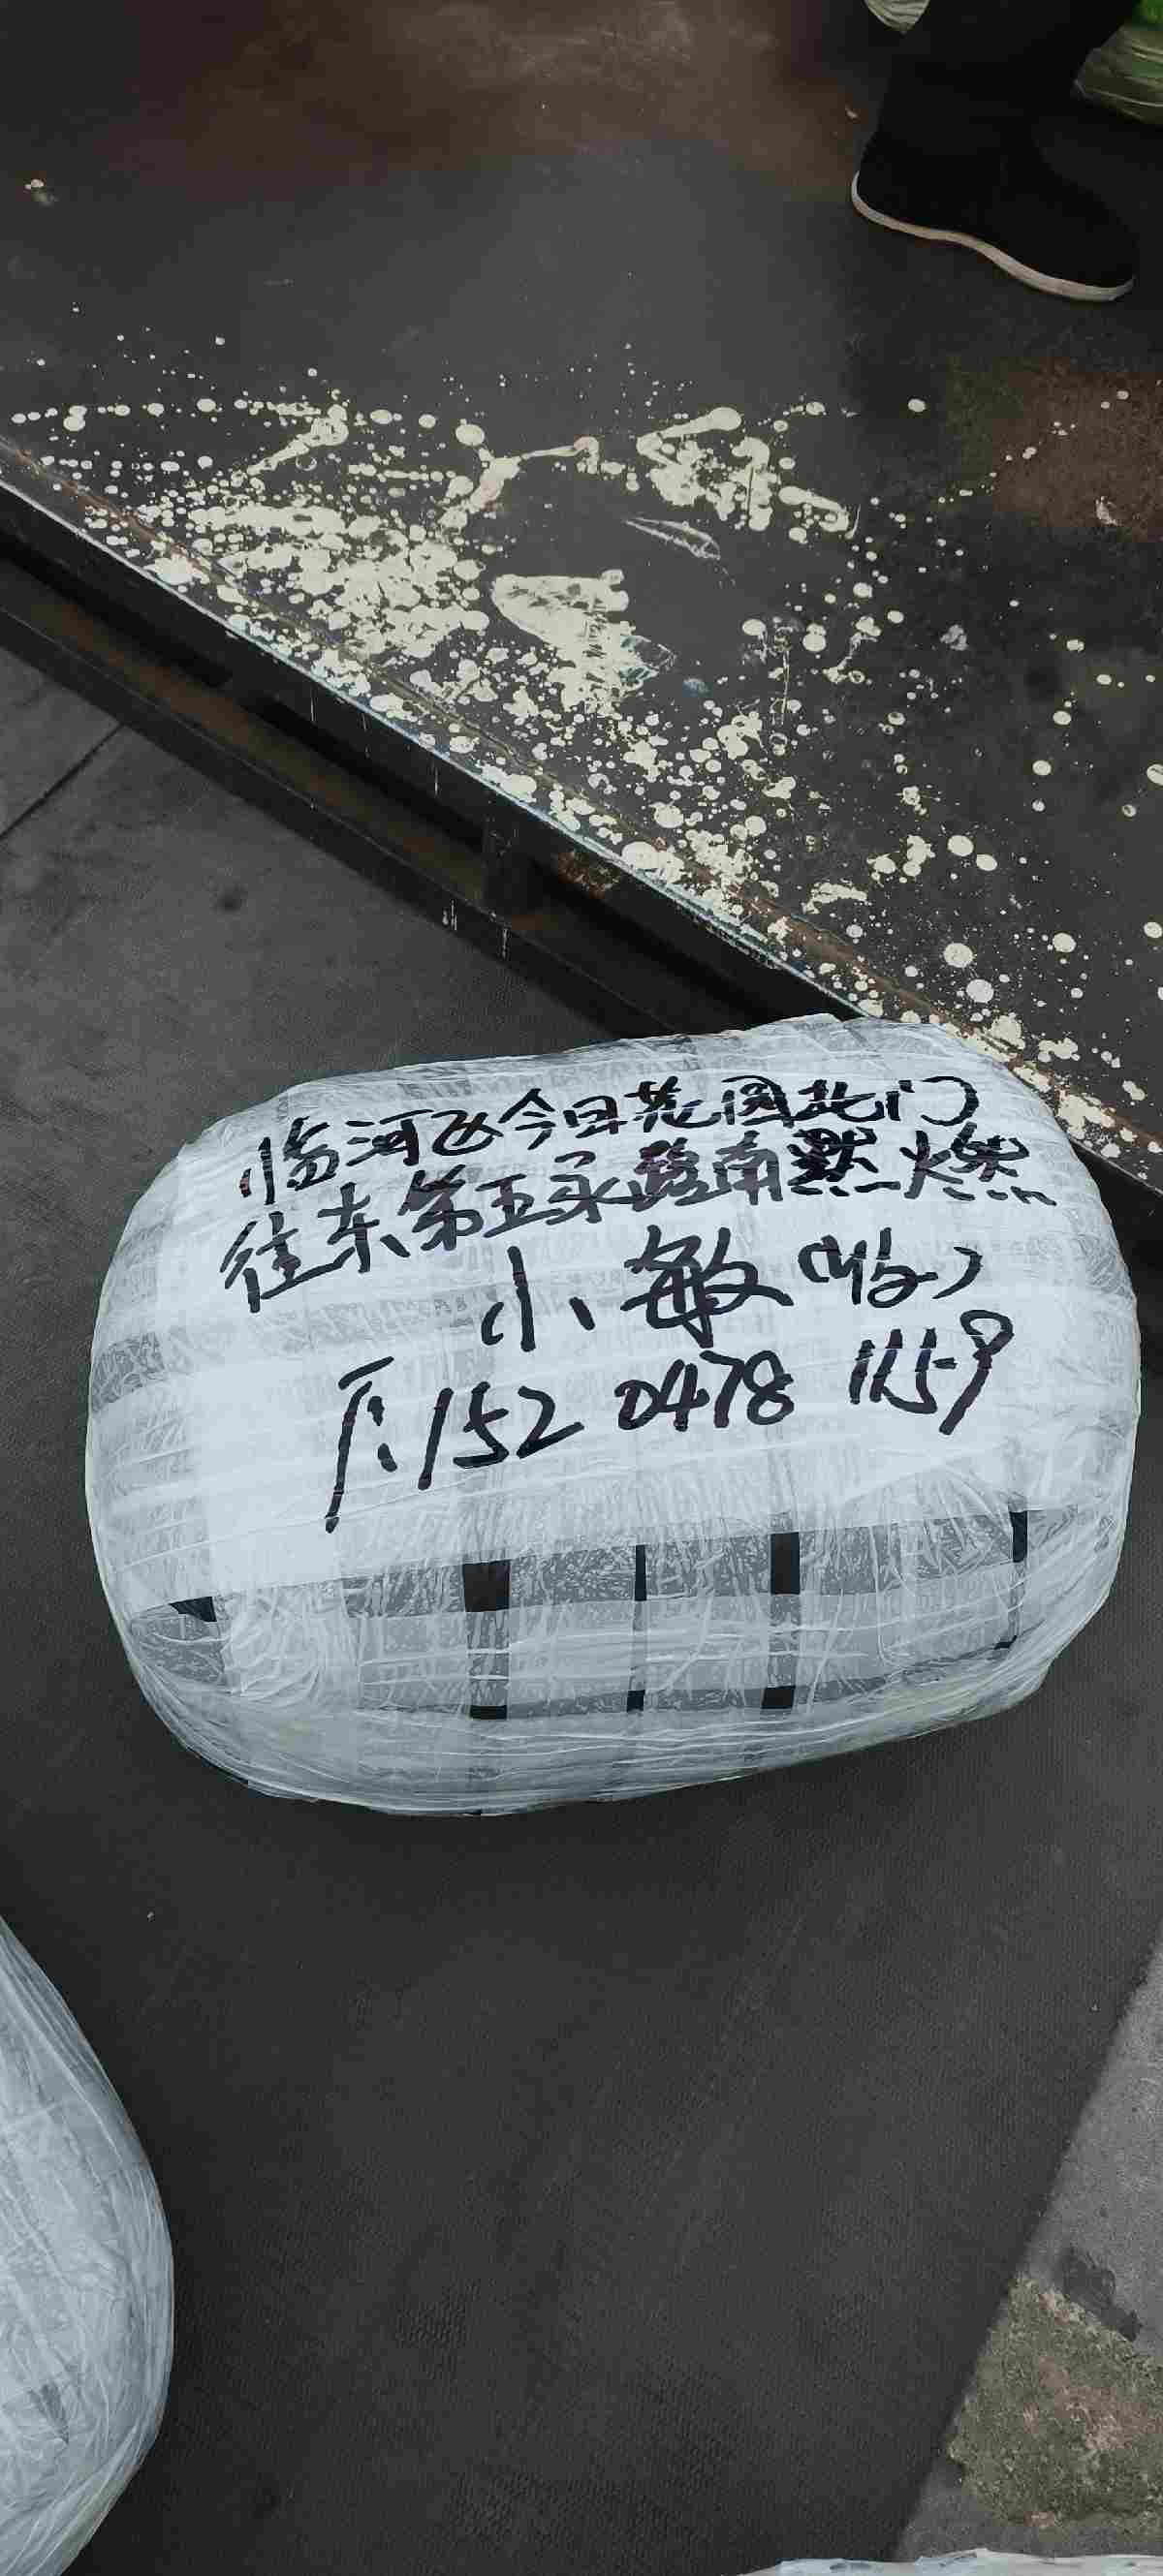 临河区今日花园北门
往东第五家路南燃
小敏(收)
1152 0478 1159